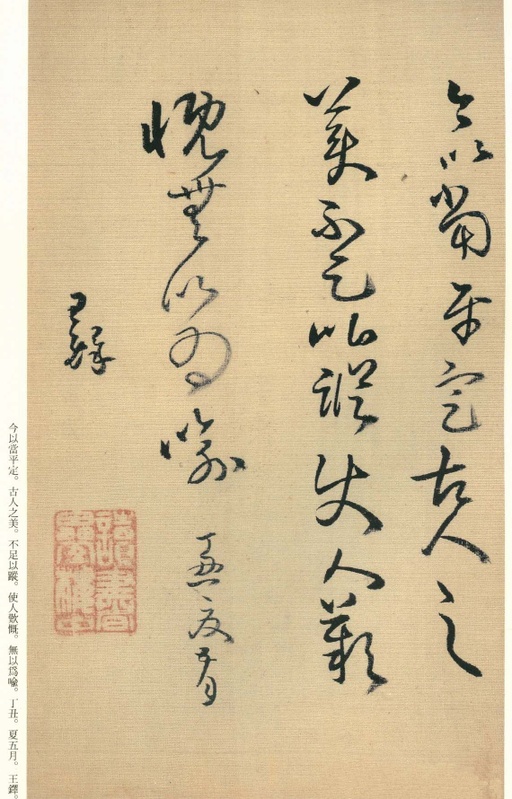 今以當平定古人之
美不足以蹤使人歎
慨無以為喻　丁丑夏五月
王鐸
今以當平定。古人之美。不足以蹤。使人歎慨。無以爲喩。丁丑。夏五月。王鐸。